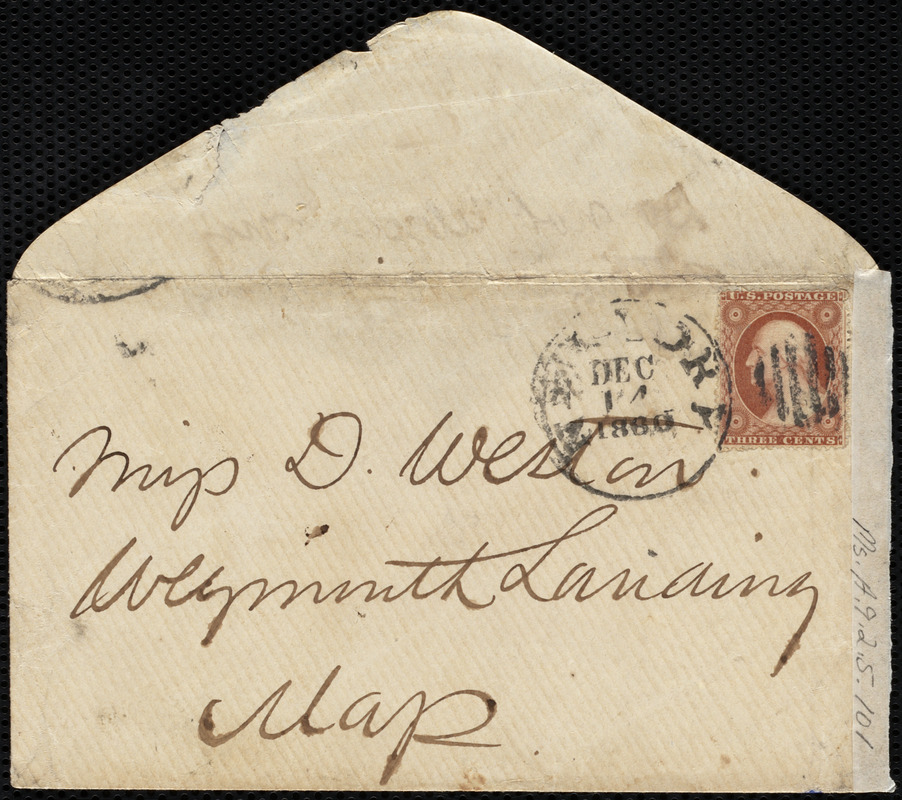 U.S. POSTAGE
THREE CENTS
NEW YORK
DEC
14
1860
Miss D. Weston
Weymouth Landing
Mass
Ms. A.9.2.5.101